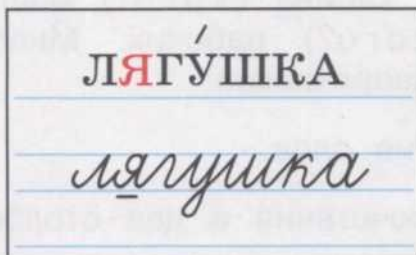 ЛЯГУ́ШКА
лягушка